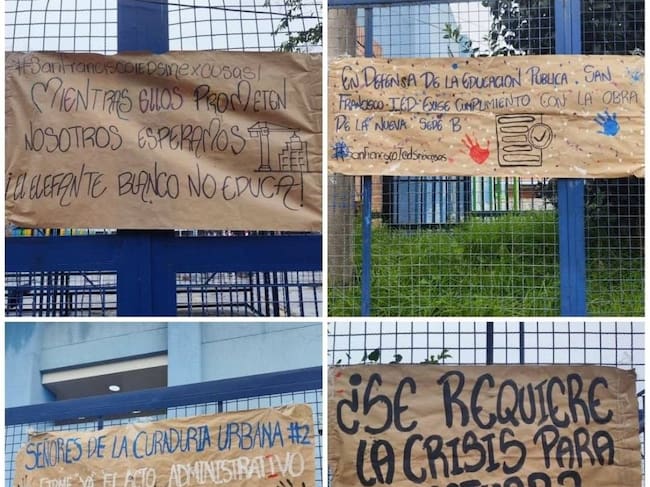 #SanFranciscoIEDsinexcusas!
MIENTRAS ELLOS PROMETEN
NOSOTROS ESPERAMOS
¡EL ELEFANTE BLANCO NO EDUCA!
EN DEFENSA DE LA EDUCACIÓN PÚBLICA. SAN
FRANCISCO IED EXIGE CUMPLIMIENTO CON LA OBRA
DE LA NUEVA SEDE B
#SanFranciscoIedsinexcusas
SEÑORES DE LA CURADURIA URBANA #2
YA EL ACTO ADMINISTRATIVO
¿SE REQUIERE
LA CRISIS PARA